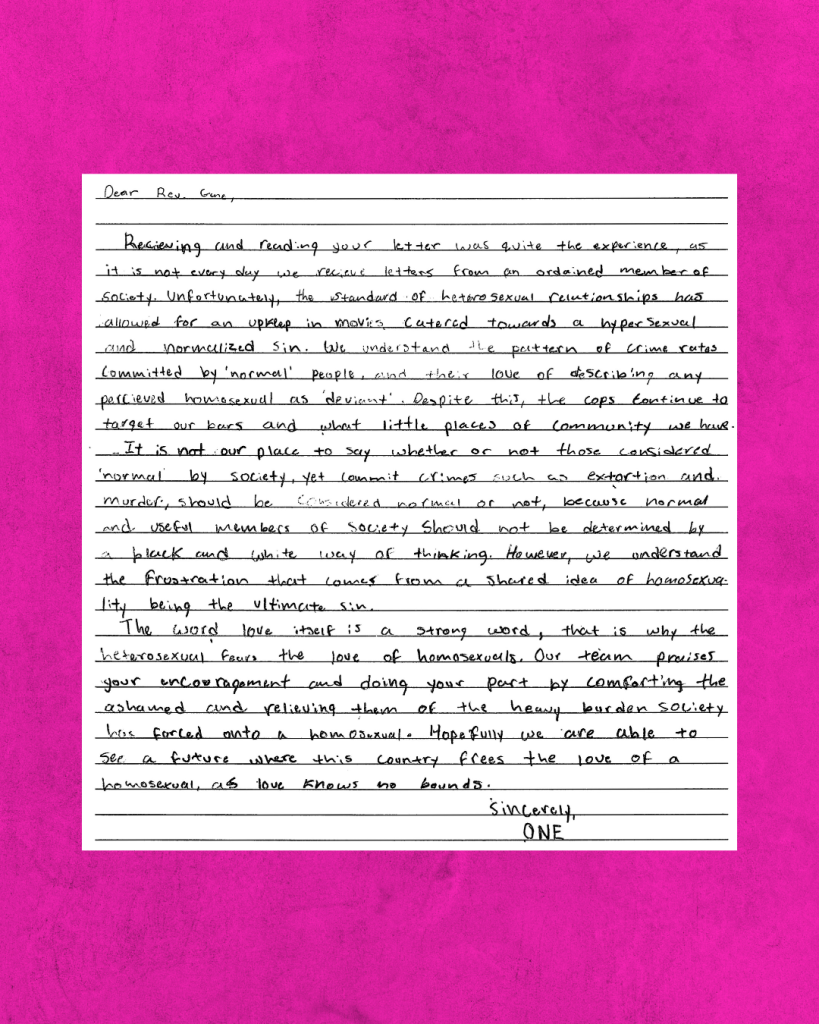 Dear Rev. Gene,
Recieving and reading your letter was quite the experience, as
it is not every day we recieve letters from an ordained member of
society. Unfortunately, the standard of heterosexual relationships has
allowed for an upkeep in movies catered towards a hyper sexual
and normalized sin. We understand the pattern of crime rates
committed by 'normal' people, and their love of describing any
percieved homosexual as 'deviant'. Despite this, the cops continue to
target our bars and what little places of community we have.
It is not our place to say whether or not those considered
'normal' by society, yet commit crimes such as extortion and
murder, should be considered normal or not, because normal
and useful members of society should not be determined by
a black and white way of thinking. However, we understand
the frustration that comes from a shared idea of homosexua-
lity being the ultimate sin.
The word love itself is a strong word, that is why the
heterosexual fears the love of homosexuals. Our team praises
your encouragement and doing your part by comforting the
ashamed and relieving them of the heavy burden society
has forced onto a homosexual. Hopefully we are able to
see a future where this country frees the love of a
homosexual, as love knows no bounds.
Sincerely,
ONE